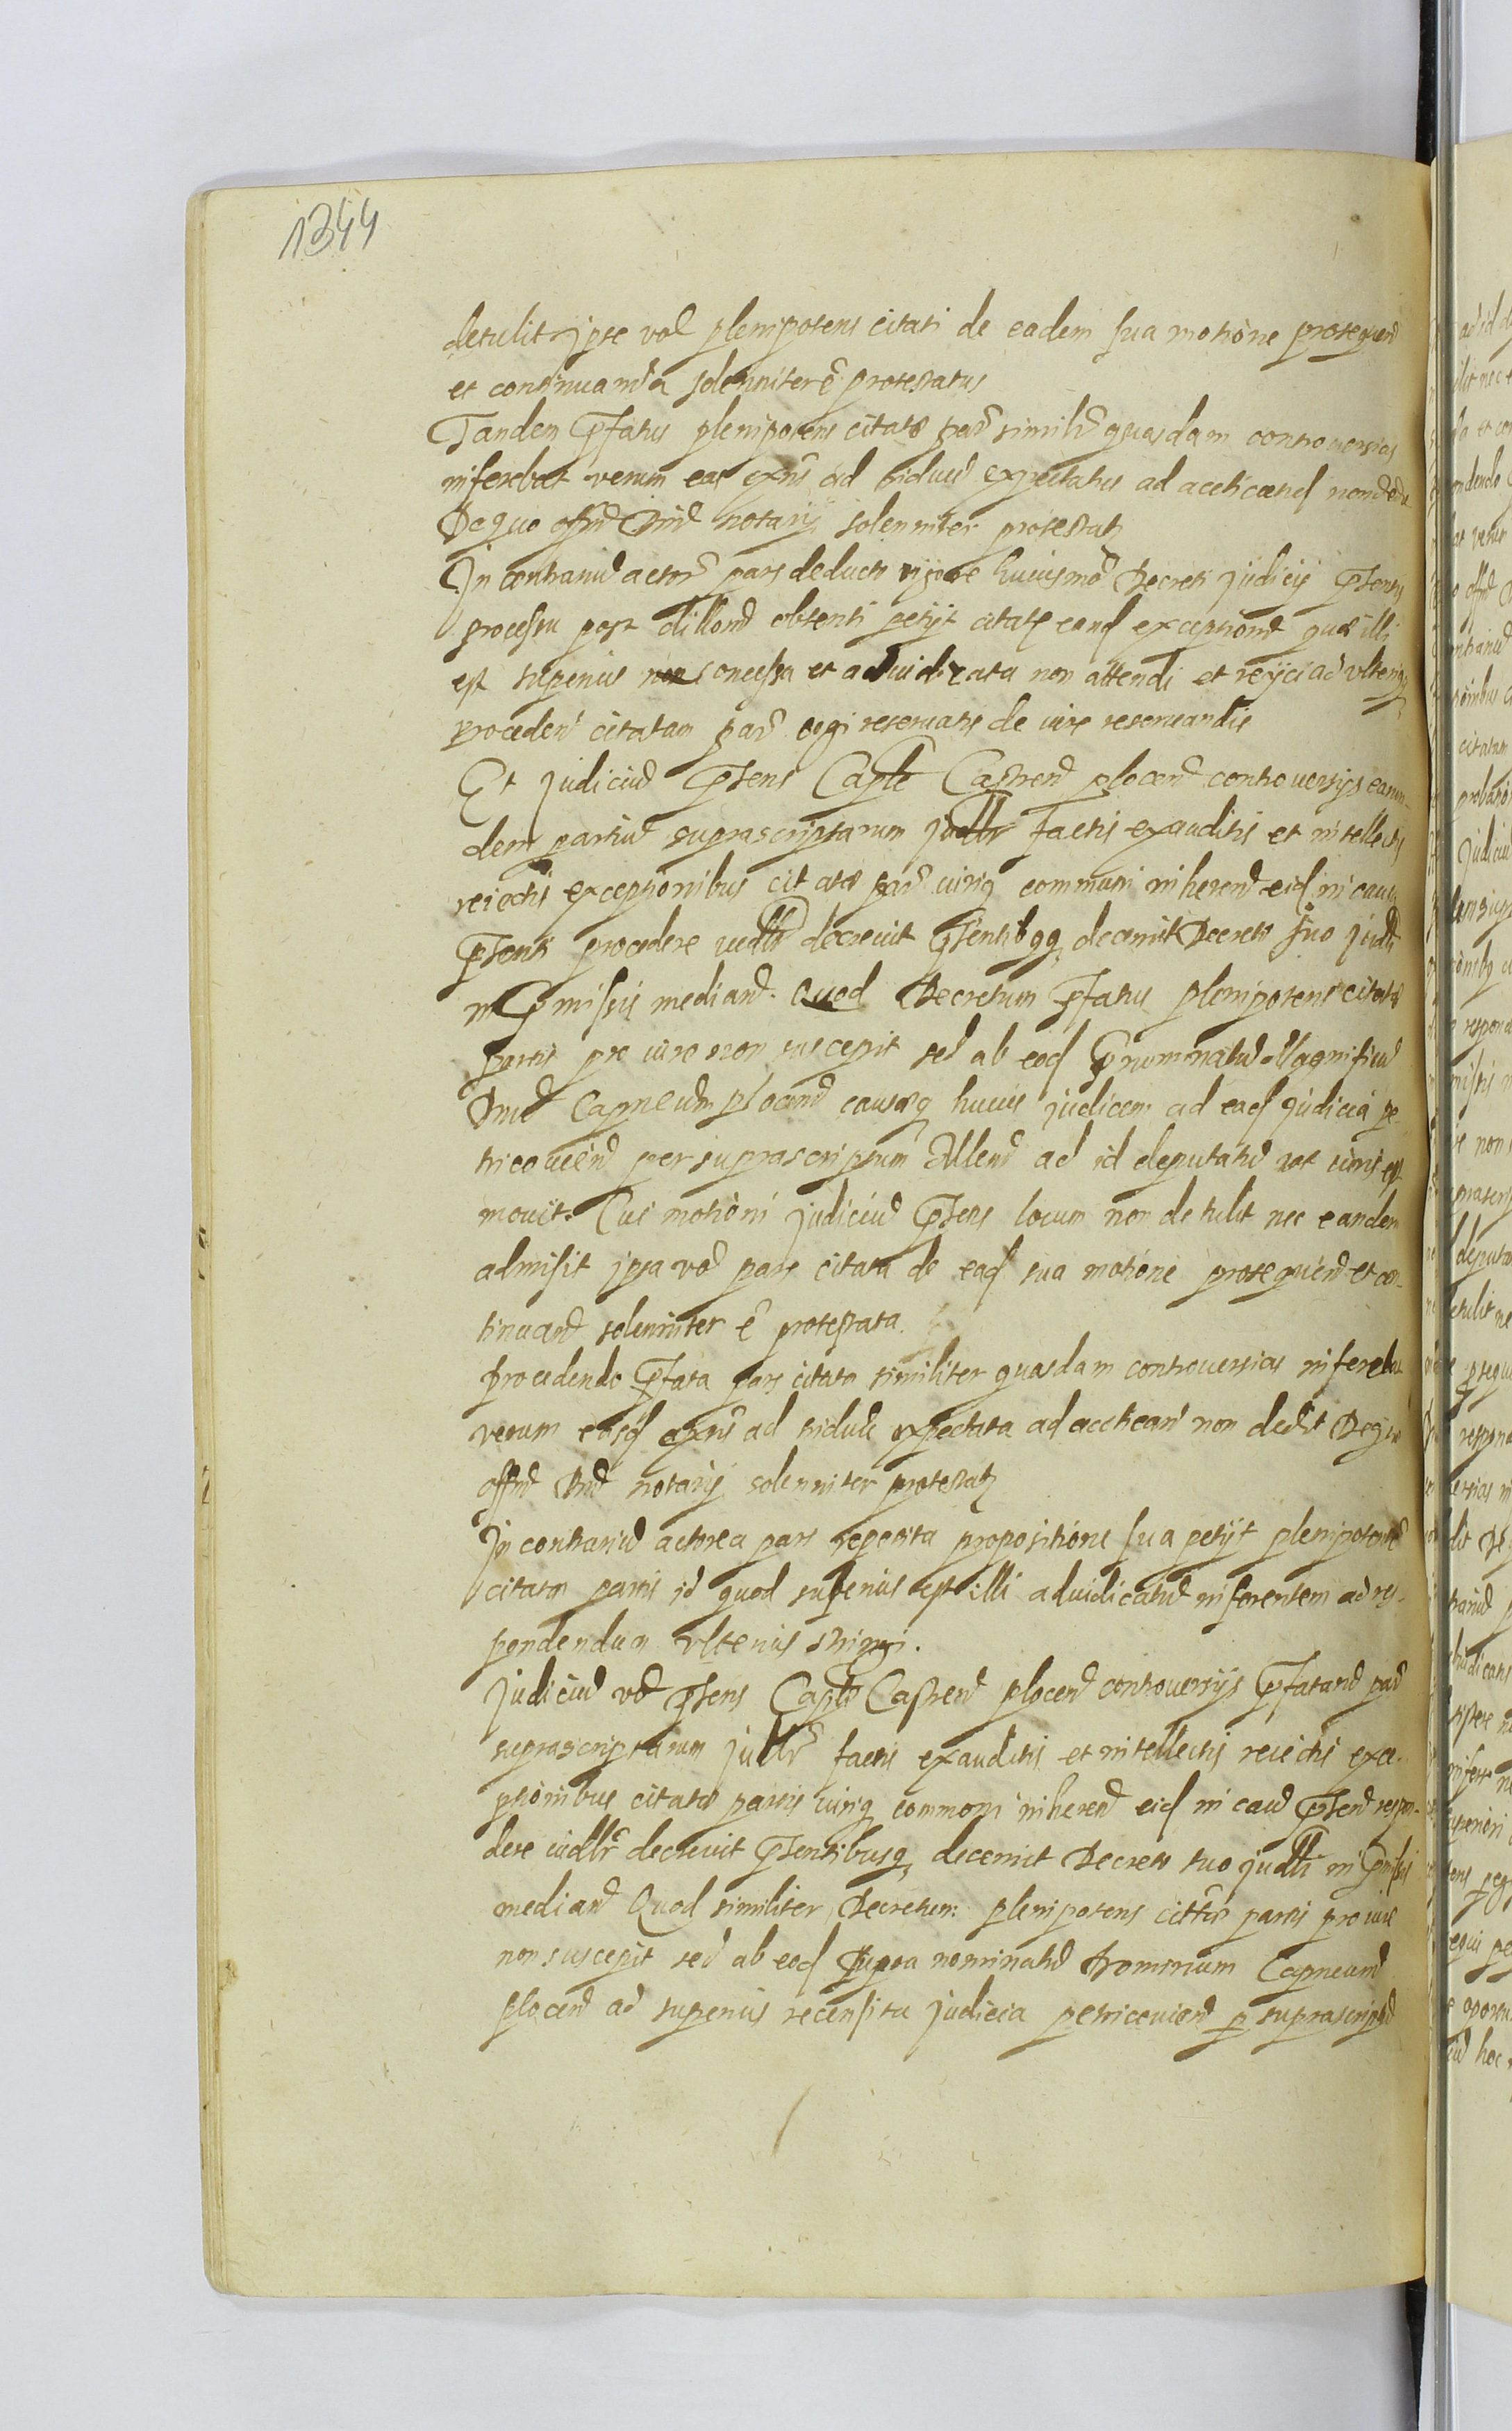 1344
detulit ipse vol plenipotens citati de eadem sua motione prosequend
et continuanda solenniter e protestatus
Tandem pfatus plenipotens citatæ par similr quasdam controuersias
inferebat verum eas exns ad triduu expectatus ad acticand non dedit
De quo offm Dni notarij solenniter protestatz
In contrariu actor pars deducto rigore huiusmo Decreti judicij psentis
processu post dillond obtenti petijt citatæ eand exceptiond quæ illi
est superius concessa et adiudicata non attendi et reijci ad vlterig
procedend citatam par cogi reseruatis de iure reseruandis
Et judiciu psens Caple Castren plocen controuersijs earun-
dem partiu suprascriptarum judlr factis exauditis et intellectis
reiectis exceptionibus citatæ par iuriq communi inherend eid in causa
psenti procedere iudlr decreuit psentibqq decernit Decreto suo judli
in pmissis median. Quod Decretum pfatus plenipotens citatæ
partis pro iure non suscepit sed ab eod pnominatu Magnificu
Dnu Capneum plocen causæq huius judicem ad ead judicia pe-
tricouien per suprascriptum Allen ad id deputatu vt iuris est
mouit. Cui motioni judiciu psens locum non detulit nec eandem
admisit ipsa vo pars citata de ead sua motione prosequend et con-
tinuand solenniter e protestata
Procedendo pfata pars citata similiter quasdam controuersias inferebat
verum easd exns ad triduu expectata ad acticand non dedit De quo
offm Dni notarij solenniter protestatz
In contrariu actorea pars repetita propositione sua petijt plenipotente
citatæ partis id quod superius est illi adiudicatu inferentem ad res-
pondendum vlterius stringi.
Judiciu vo psens Caple Castren plocen controuersijs pfataru par
suprascriptarum judlr factis exauditis et intellectis reiectis exce-
ptionibus citatæ partis iuriq communi inherend eid in causa psen respon-
dere iudlr decreuit psentibusq decernit Decreto suo judli in pmissis
median Quod similiter Decretum plenipotens cittæ partis pro iure
non suscepit sed ab eod supra nominatu Dominum Capneum
plocen ad superius recensita judicia petricouien p suprascriptu